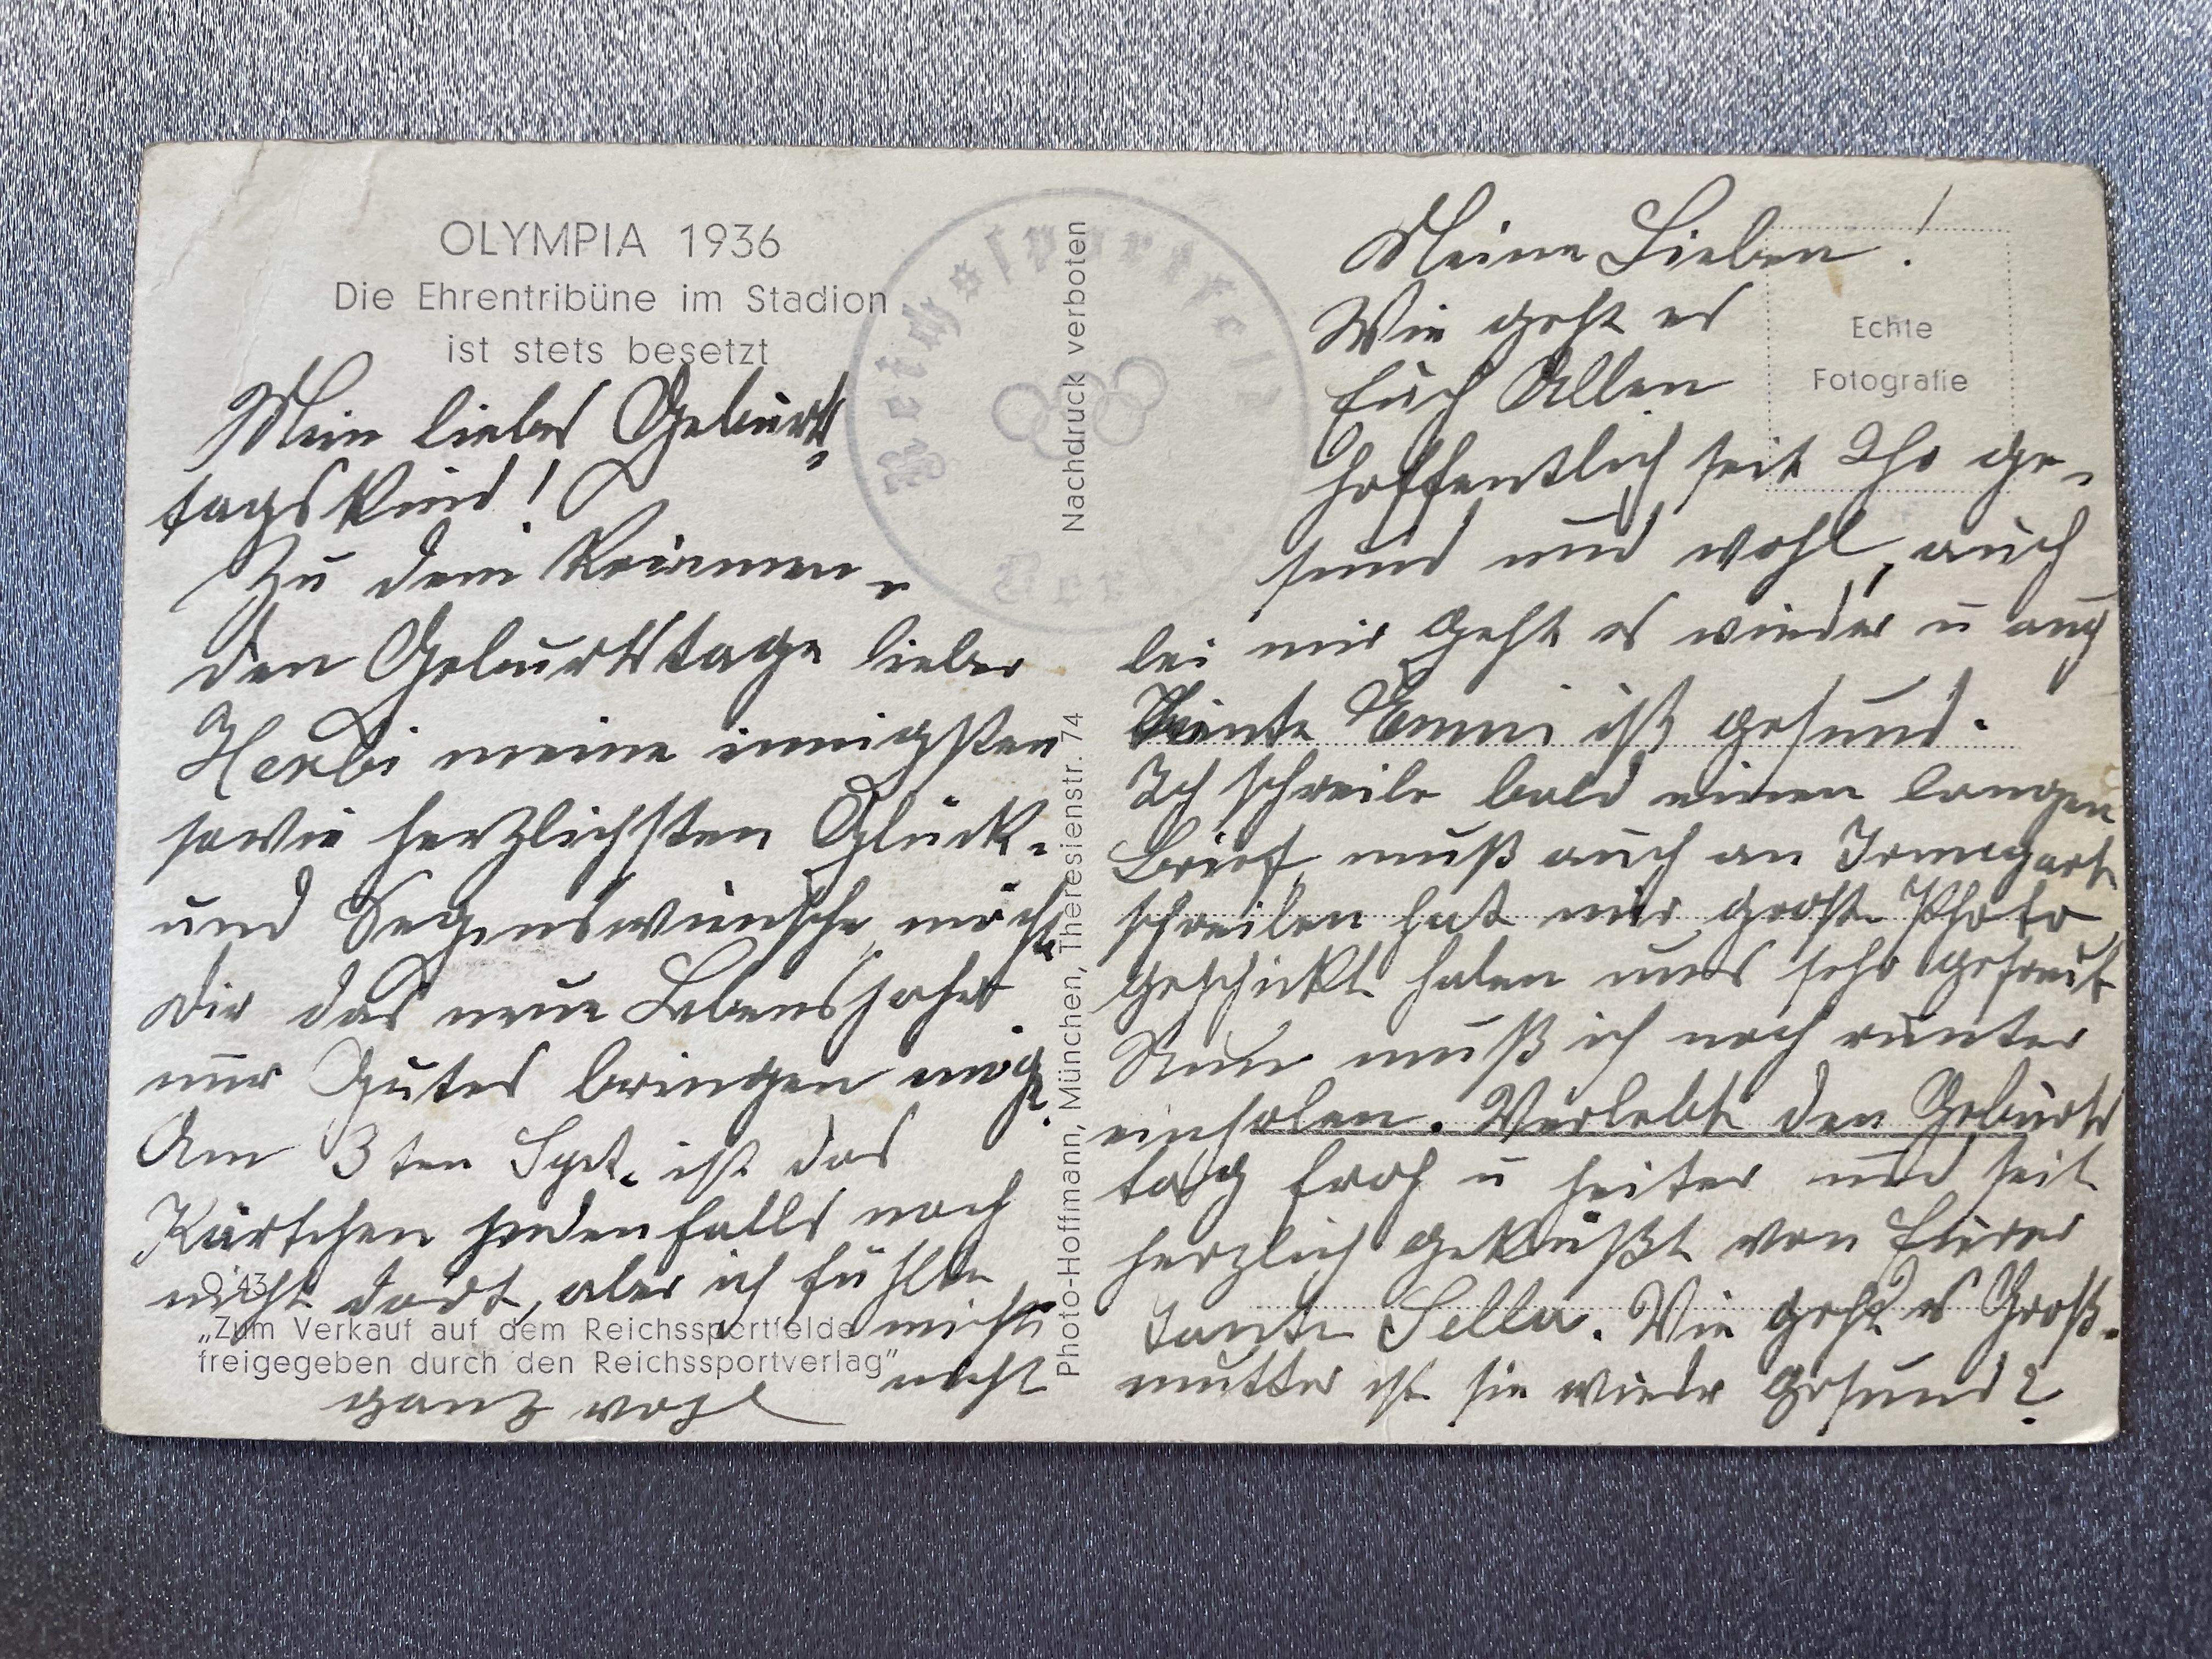 OLYMPIA 1936
Die Ehrentribüne im Stadion
ist stets besetzt
Mein liebes Geburts-
tagskind!
Zu dem
den Geburtstage lieber
Herbi meine innigsten
sowie herzlichsten Glück-
und Segenswünsche, möchte
Dir das neue Lebensjahr
nur Gutes bringen mög.
Am 3ten Sept. ist das
Kärtchen jedenfalls noch
nicht dort, aber ich fühlte
mich
nicht
ganz wohl
O 43
„Zum Verkauf auf dem Reichssportfelde
freigegeben durch den Reichssportverlag"
Reichssportfeld
Nachdruck verboten
Photo-Hoffmann, München, Theresienstr. 74
Echte
Fotografie
Meine Lieben!
Wie geht es
Euch Allen
hoffentlich seit Ihr ge-
sund und wohl, auch
bei mir geht es wieder u auch
Tante Emmi ist gesund.
Ich schreibe bald einen langen
Brief, muß auch an Irmgart
schreiben hat mir große Photo
geschickt haben uns sehr gefreut
Nun muß ich noch runter
einholen. Verlebt den Geburts
tag froh u heiter und seit
herzlich geküßt von Eurer
Tante Sella. Wie geht es Groß-
mutter ist sie wieder gesund?